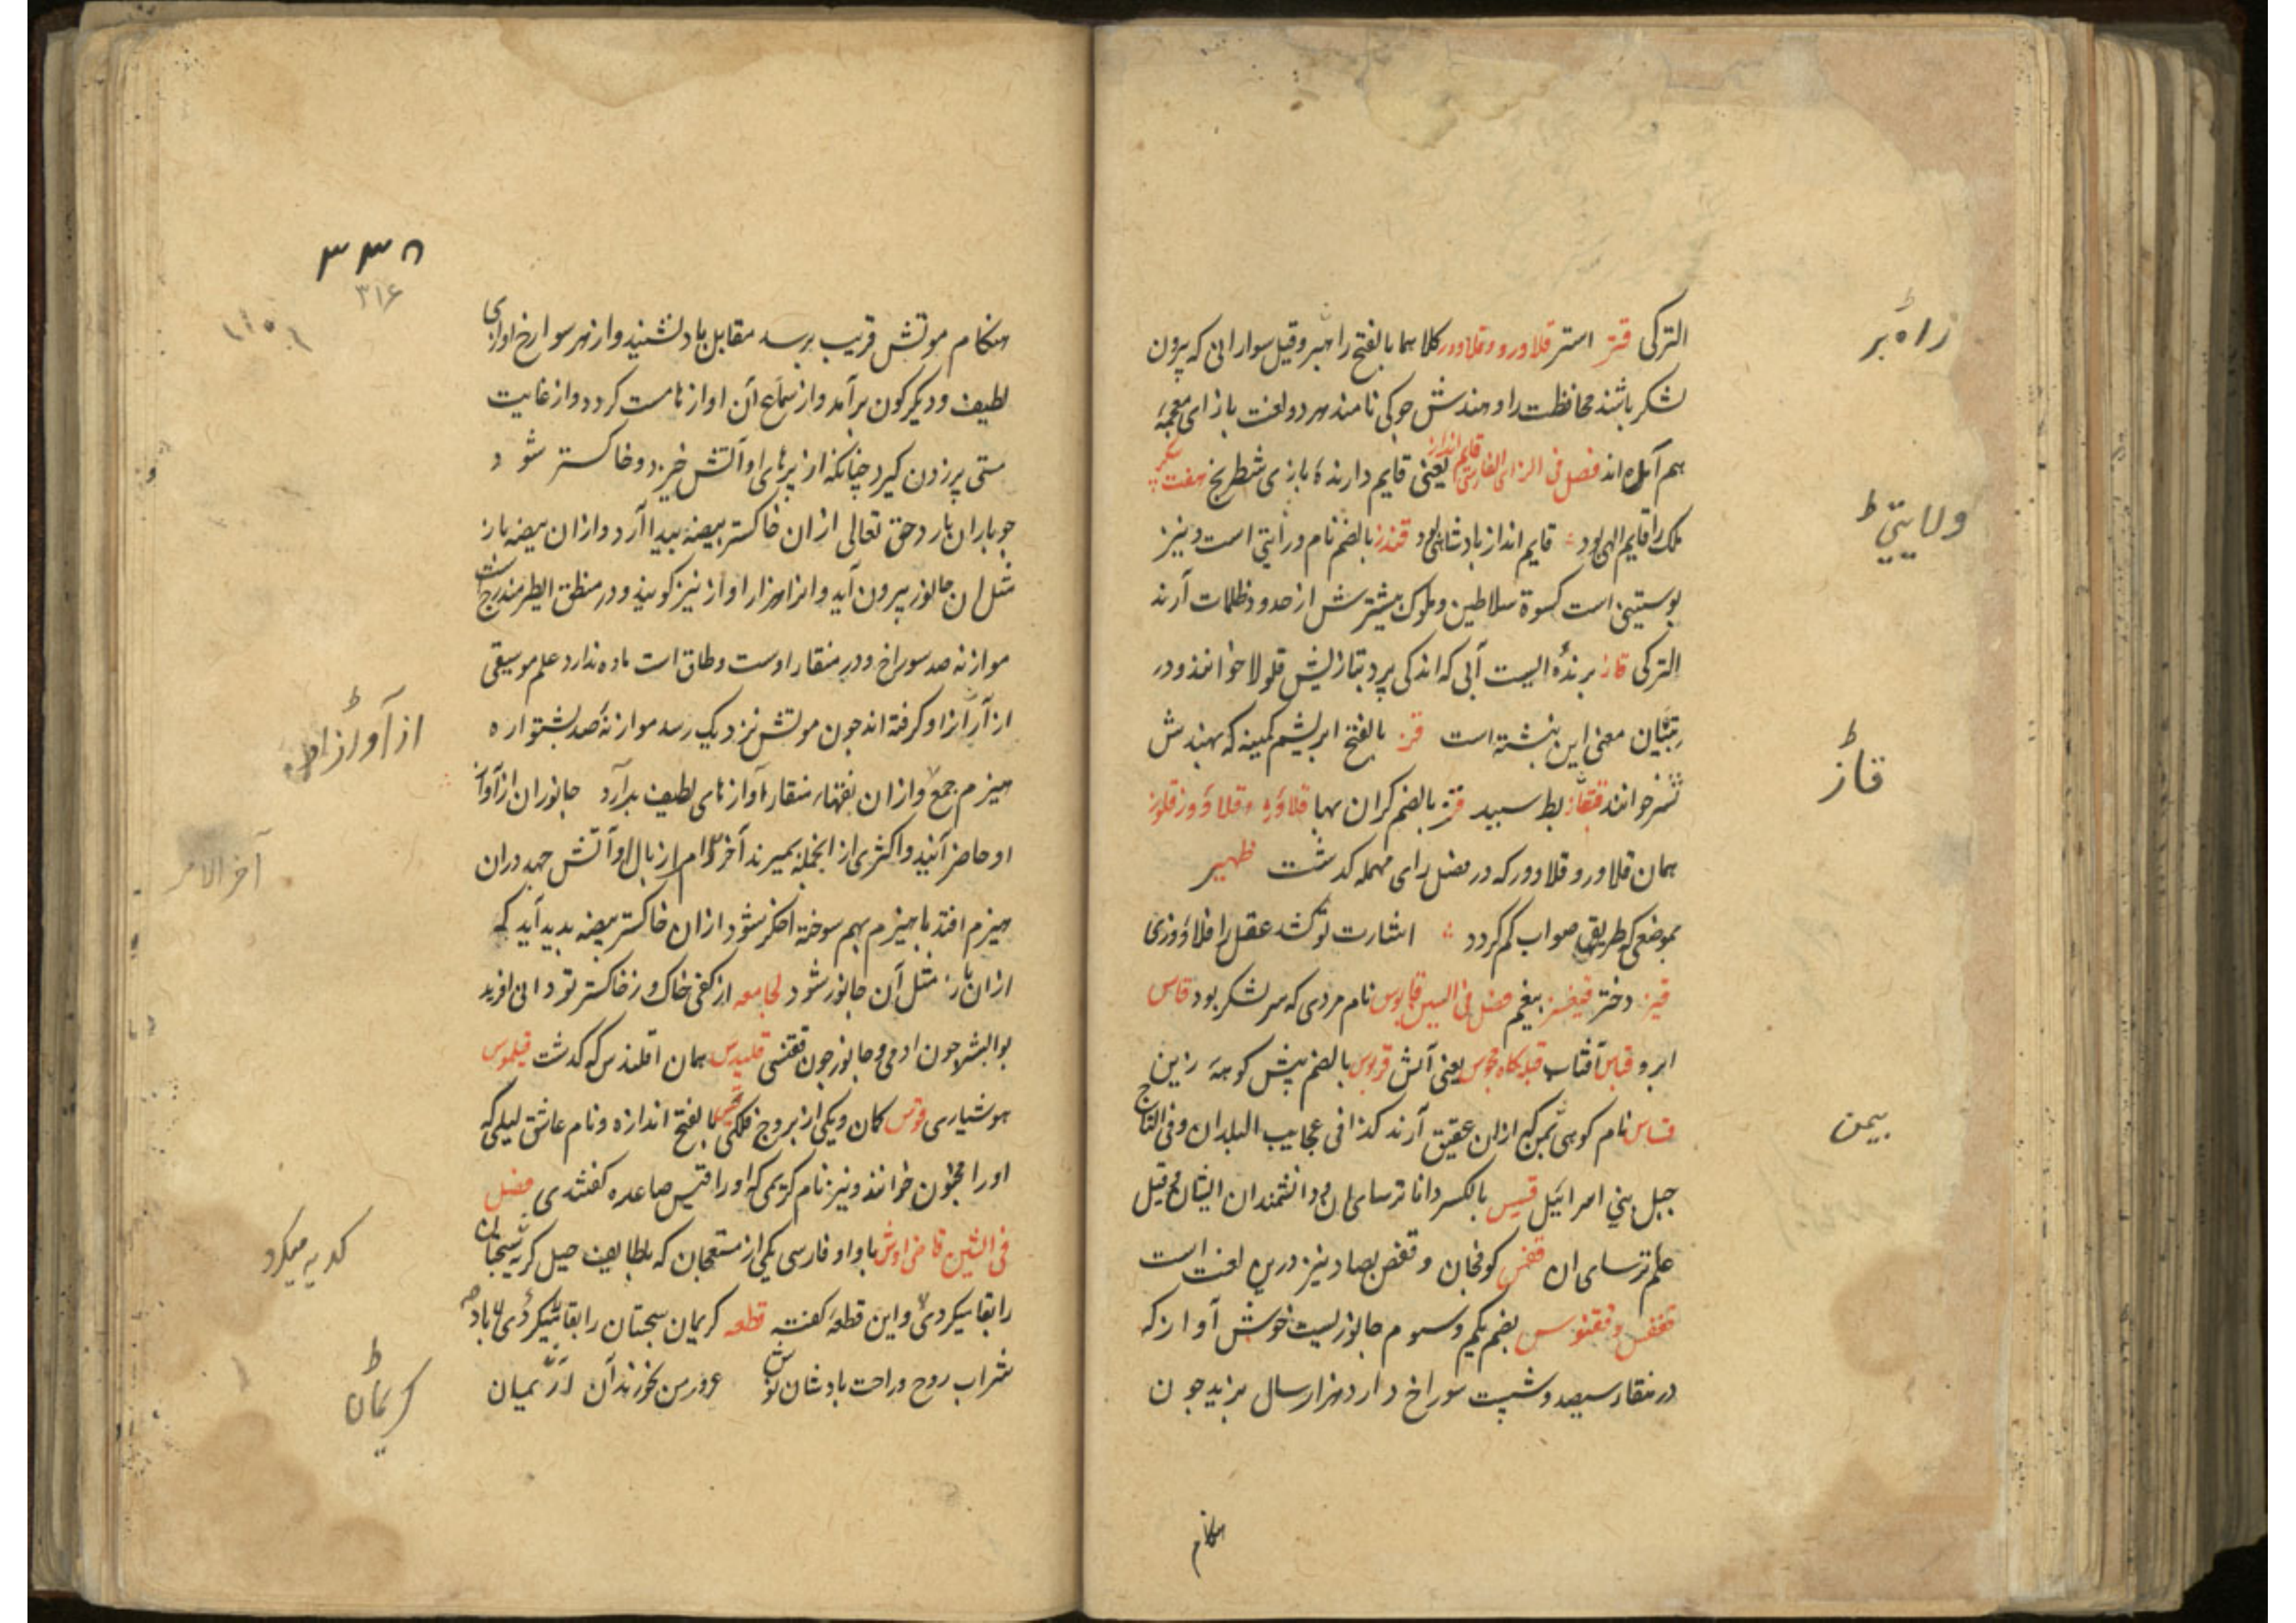 الترکی قتر استر قلاورو و قلاوور کلاهما بالفتح راهبر و قیل سوارانی که بیرون
لشکر باشند محافظت را و هندش جوکی نامند هر دو لغت با زای معجمه
هم آمده اند فصل فی الزای الفارسی قایم انداز یعنی قایم دارنده بازی شطرنج
ملک را قایم الهی بود قایم انداز پادشاهی بود قندز بالضم نام ورایتی است و نیز
پوستینی است کسوة سلاطین و ملوک بیشترش از حدود ظلمات آرند
الترکی قاز پرنده ایست آبی که اندکی پرد بتازیش خوانند و در
تبیان معنی این نبشته است قز بالفتح ابریشم کمینه که بهندش
خوانند بط سپید قز بالضم کران بها
همان قلاورو و قلاوور که در فصل رای مهمله کدشت ظهیر
بموضعی که طریق صواب کم کردد اشارت تو کشد عقل را قلاوزی
قیز دختر بیغم فصل فی السین قابوس نام مردی که سر لشکر بود قاس
ابرو قباس آفتاب قبله کاه مجوس یعنی آتش قربوس بالضم پیش کوهه زین
قساس نام کوهی بیمن که ازان عقیق آرند کذا فی عجایب البلدان و فی التاج
جبل بنی اسرائیل قسیس بالکسر دانا ترسایان و دانشمندان ایشان و قیل
علم ترسایان قفس و قفص بصاد نیز درین لغت است
ققنس و ققنوس بضم یکم و سوم جانوریست خوش آواز که
در منقار سیصد و شصت سوراخ دارد هزار سال بزید جون
هنکام
راه بر
ولایتی
قاز
بیمن
۳۳۸
۳۱۶
هنکام موتش قریب برسد مقابل باد نشیند و از هر سوراخ اوازی
لطیف و دیکرکون برآمد و از سماع آن اوازها مست کردد و از غایت
مستی پر زدن کیرد چنانکه از پرهای او آتش خیزد و خاکستر شود
جو باران بارد حق تعالی از ان خاکستر بیضه پیدا آرد و ازان بیضه باز
مثل ان جانور بیرون آید و انرا هزار اواز نیز کویند و در منطق الطیر مندرج است
موازنه صد سوراخ در منقار اوست و طاق است ماده ندارد علم موسیقی
از آواز او کرفته اند جون موتش نزدیک رسد موازنه صد پشتواره
هیزم جمع و ازان منقار آوازهای لطیف برآرد جانوران از آواز
او حاضر آیند و اکثری از انجمله بمیرند آخر الامر از بال او آتش جهد دران
هیزم افتد با هیزم بهم سوخته اخکر شود ازان خاکستر بیضه پدید آید که
ازان باز مثل آن جانور شود لجامعه از کفی خاک و ز خاکستر تو دانی افرید
بوالبشر جون ادمی و جانور جون ققنسی قلیدس همان اقلیدس که کدشت
هوشیاری قوس کمان و یکی از بروج فلکی قیس بالفتح اندازه و نام عاشق لیلی که
اورا مجنون خوانند و نیز نام کریمی که اورا قیس صاعده کفتندی فصل
فی الشین قاضی اوش با واو فارسی یکی از که بلطایف حیل
را بقا میکردی و این قطعه کفته قطعه کریمان را بقا میکردی
شراب روح و راحت بادشان نوش
از آواز او
آخر الامر
کدیه میکرد
کریمان